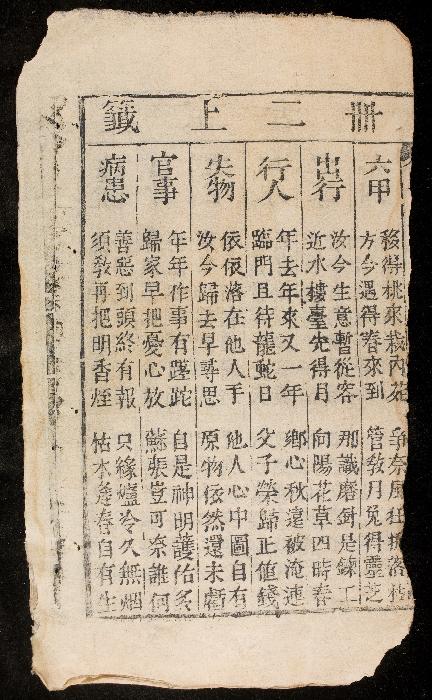 冊二上籤
六甲
移得桃來栽內苑 爭奈風狂損落枝
方今遇得春來到 管教月兔得靈芝
出行
汝今生意暫從容 那識磨針是鍊工
近水樓臺先得月 向陽花草四時春
行人
年去年來又一年 鄉心秋遠被淹連
臨門且待龍蛇日 父子榮歸正值錢
失物
依依落在他人手 他人心中圖自有
汝今歸去早尋思 原物依然還未虧
官事
年年作事有蹉跎 自是神明護佑多
歸家早把憂心放 蘇張豈可奈誰何
病患
善惡到頭終有報 只緣爐冷久無烟
須教再把明香烓 枯木逢春自有生